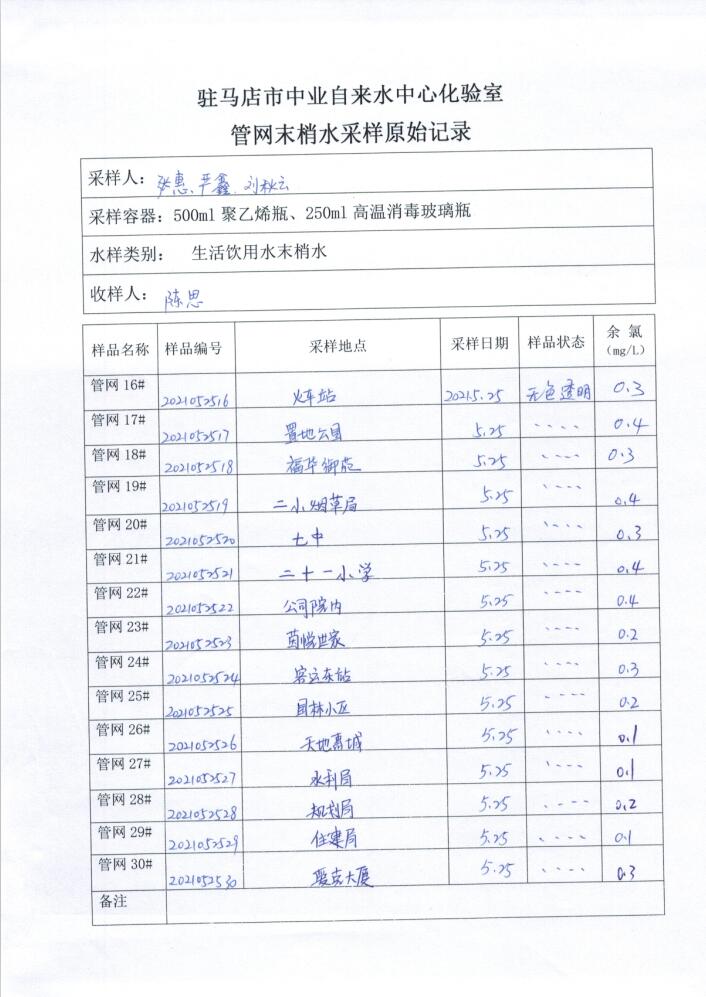 驻马店市中业自来水中心化验室
管网末梢水采样原始记录
采样人: 张惠、严鑫、刘秋云
采样容器: 500ml 聚乙烯瓶、250ml 高温消毒玻璃瓶
水样类别: 生活饮用水末梢水
收样人: 陈思
样品名称 样品编号 采样地点 采样日期 样品状态 余氯 (mg/L)
管网 16# 2021052516 火车站 2021.5.25 无色透明 0.3
管网 17# 2021052517 置地公园 5.25 、、、、 0.4
管网 18# 2021052518 福华御苑 5.25 、、、、 0.3
管网 19# 2021052519 二小烟草局 5.25 、、、、 0.4
管网 20# 2021052520 七中 5.25 、、、、 0.3
管网 21# 2021052521 二十一小学 5.25 、、、、 0.4
管网 22# 2021052522 公司院内 5.25 、、、、 0.4
管网 23# 2021052523 世家 5.25 、、、、 0.2
管网 24# 2021052524 客运东站 5.25 、、、、 0.3
管网 25# 2021052525 园林小区 5.25 、、、、 0.2
管网 26# 2021052526 天地商城 5.25 、、、、 0.1
管网 27# 2021052527 水利局 5.25 、、、、 0.1
管网 28# 2021052528 规划局 5.25 、、、、 0.2
管网 29# 2021052529 住建局 5.25 、、、、 0.1
管网 30# 2021052530 大厦 5.25 、、、、 0.3
备注